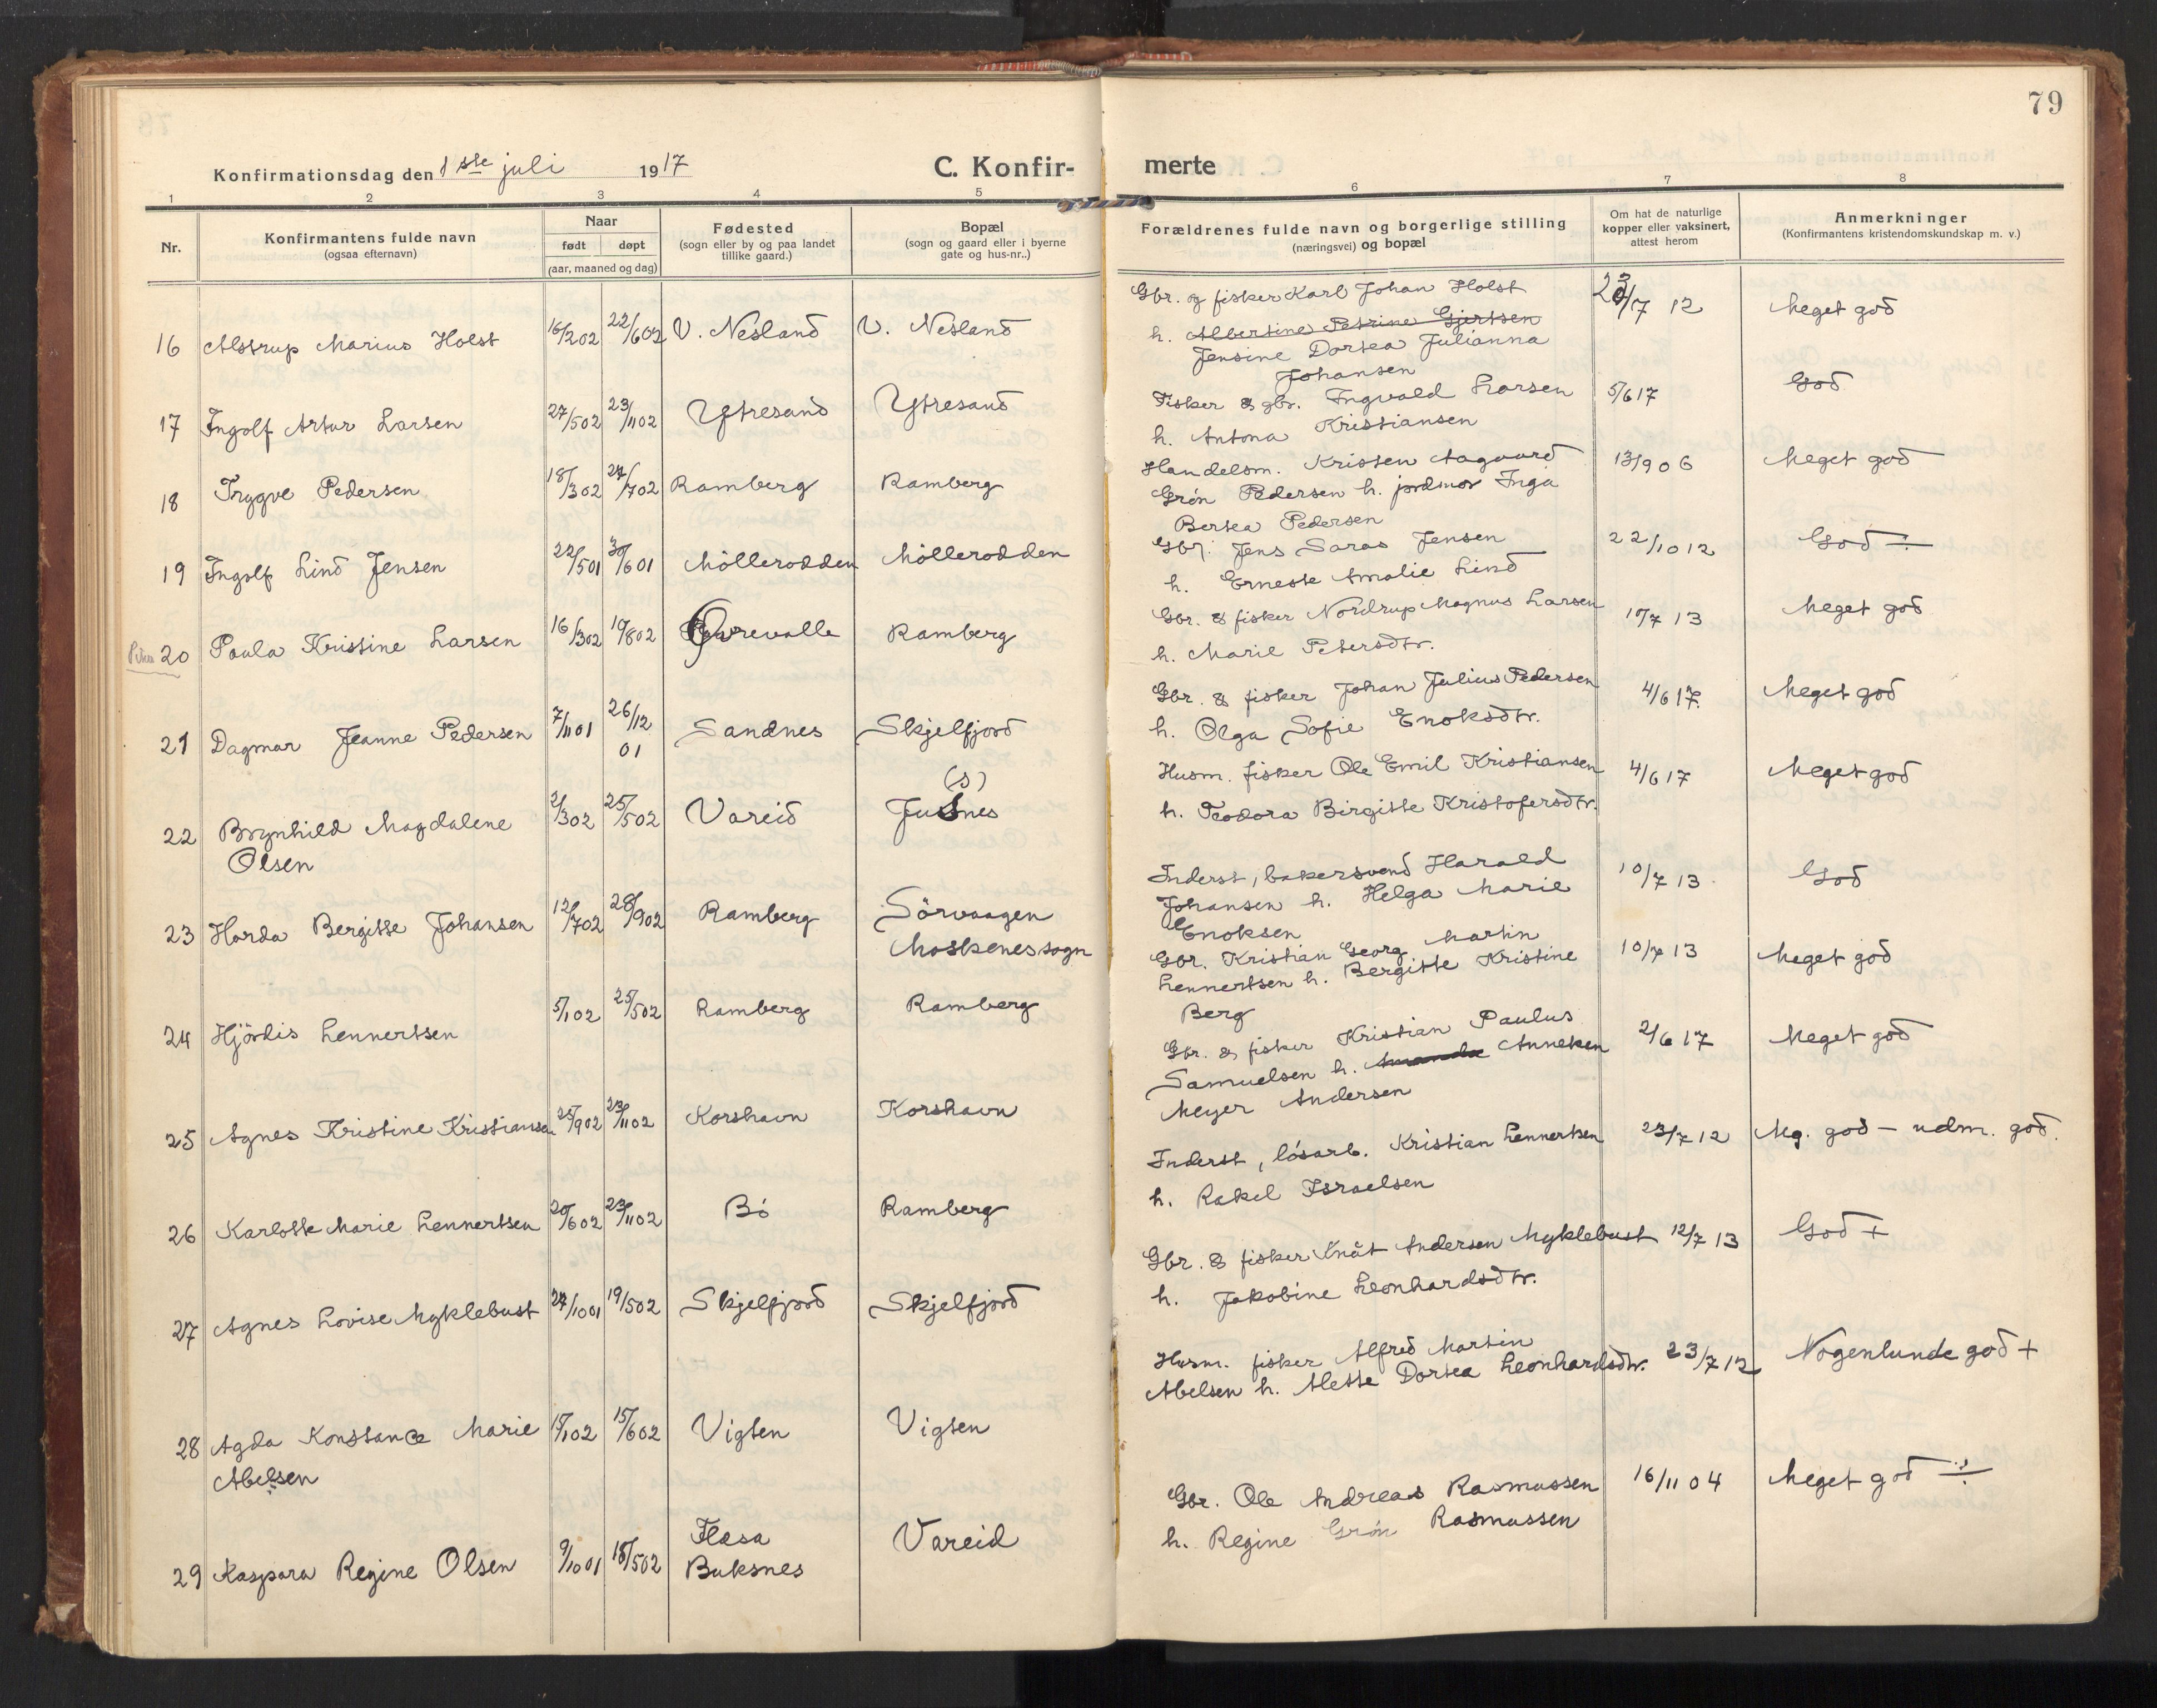 79
Konfirmationsdag den 1ste juli 1917
C. Konfir-
merte
1 2 3 4 5
6 7 8
Nr.
Konfirmantens fulde navn
(ogsaa efternavn)
Naar
født døpt
(aar, maaned og dag)
Fødested
(sogn eller by og paa landet
tillike gaard.)
Bopæl
(sogn og gaard eller i byerne
gate og hus-nr..)
Forældrenes fulde navn og borgerlige stilling
(næringsvei) og bopæl
Om hat de naturlige
kopper eller vaksinert,
attest herom
Anmerkninger
(Konfirmantens kristendomskundskap m. v.)
16 Alstrup Marius Holst 16/2 02 22/6 02 V. Nesland V. Nesland
Gbr. og fisker Karl Johan Holst 23/7 12 Meget god
h. Albertine Petrine Gjertsen
Jensine Dortea Julianna
Johansen
17 Ingolf Artur Larsen 27/5 02 23/11 02 Ytresand Ytresand
Fisker & gbr. Ingvald Larsen 5/6 17 God
h. Antona Kristiansen
18 Trygve Pedersen 18/3 02 27/7 02 Ramberg Ramberg
Handelsm. Kristen Aagaard 13/9 06 Meget god
Grön Pedersen h. jordmor Inga
Bertea Pedersen
19 Ingolf Lind Jensen 22/5 01 30/6 01 Möllerodden Möllerodden
Gbr. Jens Saras Jensen 22/10 12 God ÷
h. Erneste Amalie Lind
20 Paula Kristine Larsen 16/3 02 19/8 02 Övrevalle Ramberg
Gbr. & fisker Nordrup Magnus Larsen 10/7 13 Meget god
h. Marie Petersdtr.
21 Dagmar Jeanne Pedersen 7/11 01 26/12 01 Sandnes Skjelfjord
Gbr. & fisker Johan Julius Pedersen 4/6 17. Meget god
h. Olga Sofie Enoksdtr.
22 Brynhild Magdalene 2/3 02 25/5 02 Vareid Jusnes (s)
Olsen
Husm. fisker Ole Emil Kristiansen 4/6 17 Meget god
h. Teodora Birgitte Kristofersdtr.
23 Harda Bergitte Johansen 12/7 02 28/9 02 Ramberg Sörvaagen
Moskenes sogn
Inderst, bakersvend Harald 10/7 13. God
Johansen h. Helga Marie
Enoksen
24 Hjördis Lennertsen 5/1 02 25/5 02 Ramberg Ramberg
Gbr. Kristian Georg Martin 10/7 13 Meget god
Lennertsen h. Bergitte Kristine
Berg
25 Agnes Kristine Kristiansen 25/9 02 23/11 02 Korshavn Korshavn
Gbr. & fisker Kristian Paulus 2/6 17 Meget god
Samuelsen h. Amanda Anneken
Meyer Andersen
26 Karlotte Marie Lennertsen 20/6 02 23/11 02 Bö Ramberg
Inderst, lösarb. Kristian Lennertsen 23/7 12 Mg. god – udm. god.
h. Rakel Israelsen
27 Agnes Lovise Myklebust 27/10 01 19/5 02 Skjelfjord Skjelfjord
Gbr. & fisker Knut Andersen Myklebust 12/7 13 God +
h. Jakobine Leonhardsdtr.
28 Agda Konstance Marie 15/1 02 15/6 02 Vigten Vigten
Abelsen
Husm. fisker Alfred Martin 23/7 12 Nogenlunde god +
Abelsen h. Alette Dortea Leonhardsdtr.
29 Kaspara Regine Olsen 9/10 01 18/5 02 Flæsa Vareid
Buksnes
Gbr. Ole Andreas Rasmussen 16/11 04 Meget god ÷
h. Regine Grön Rasmussen